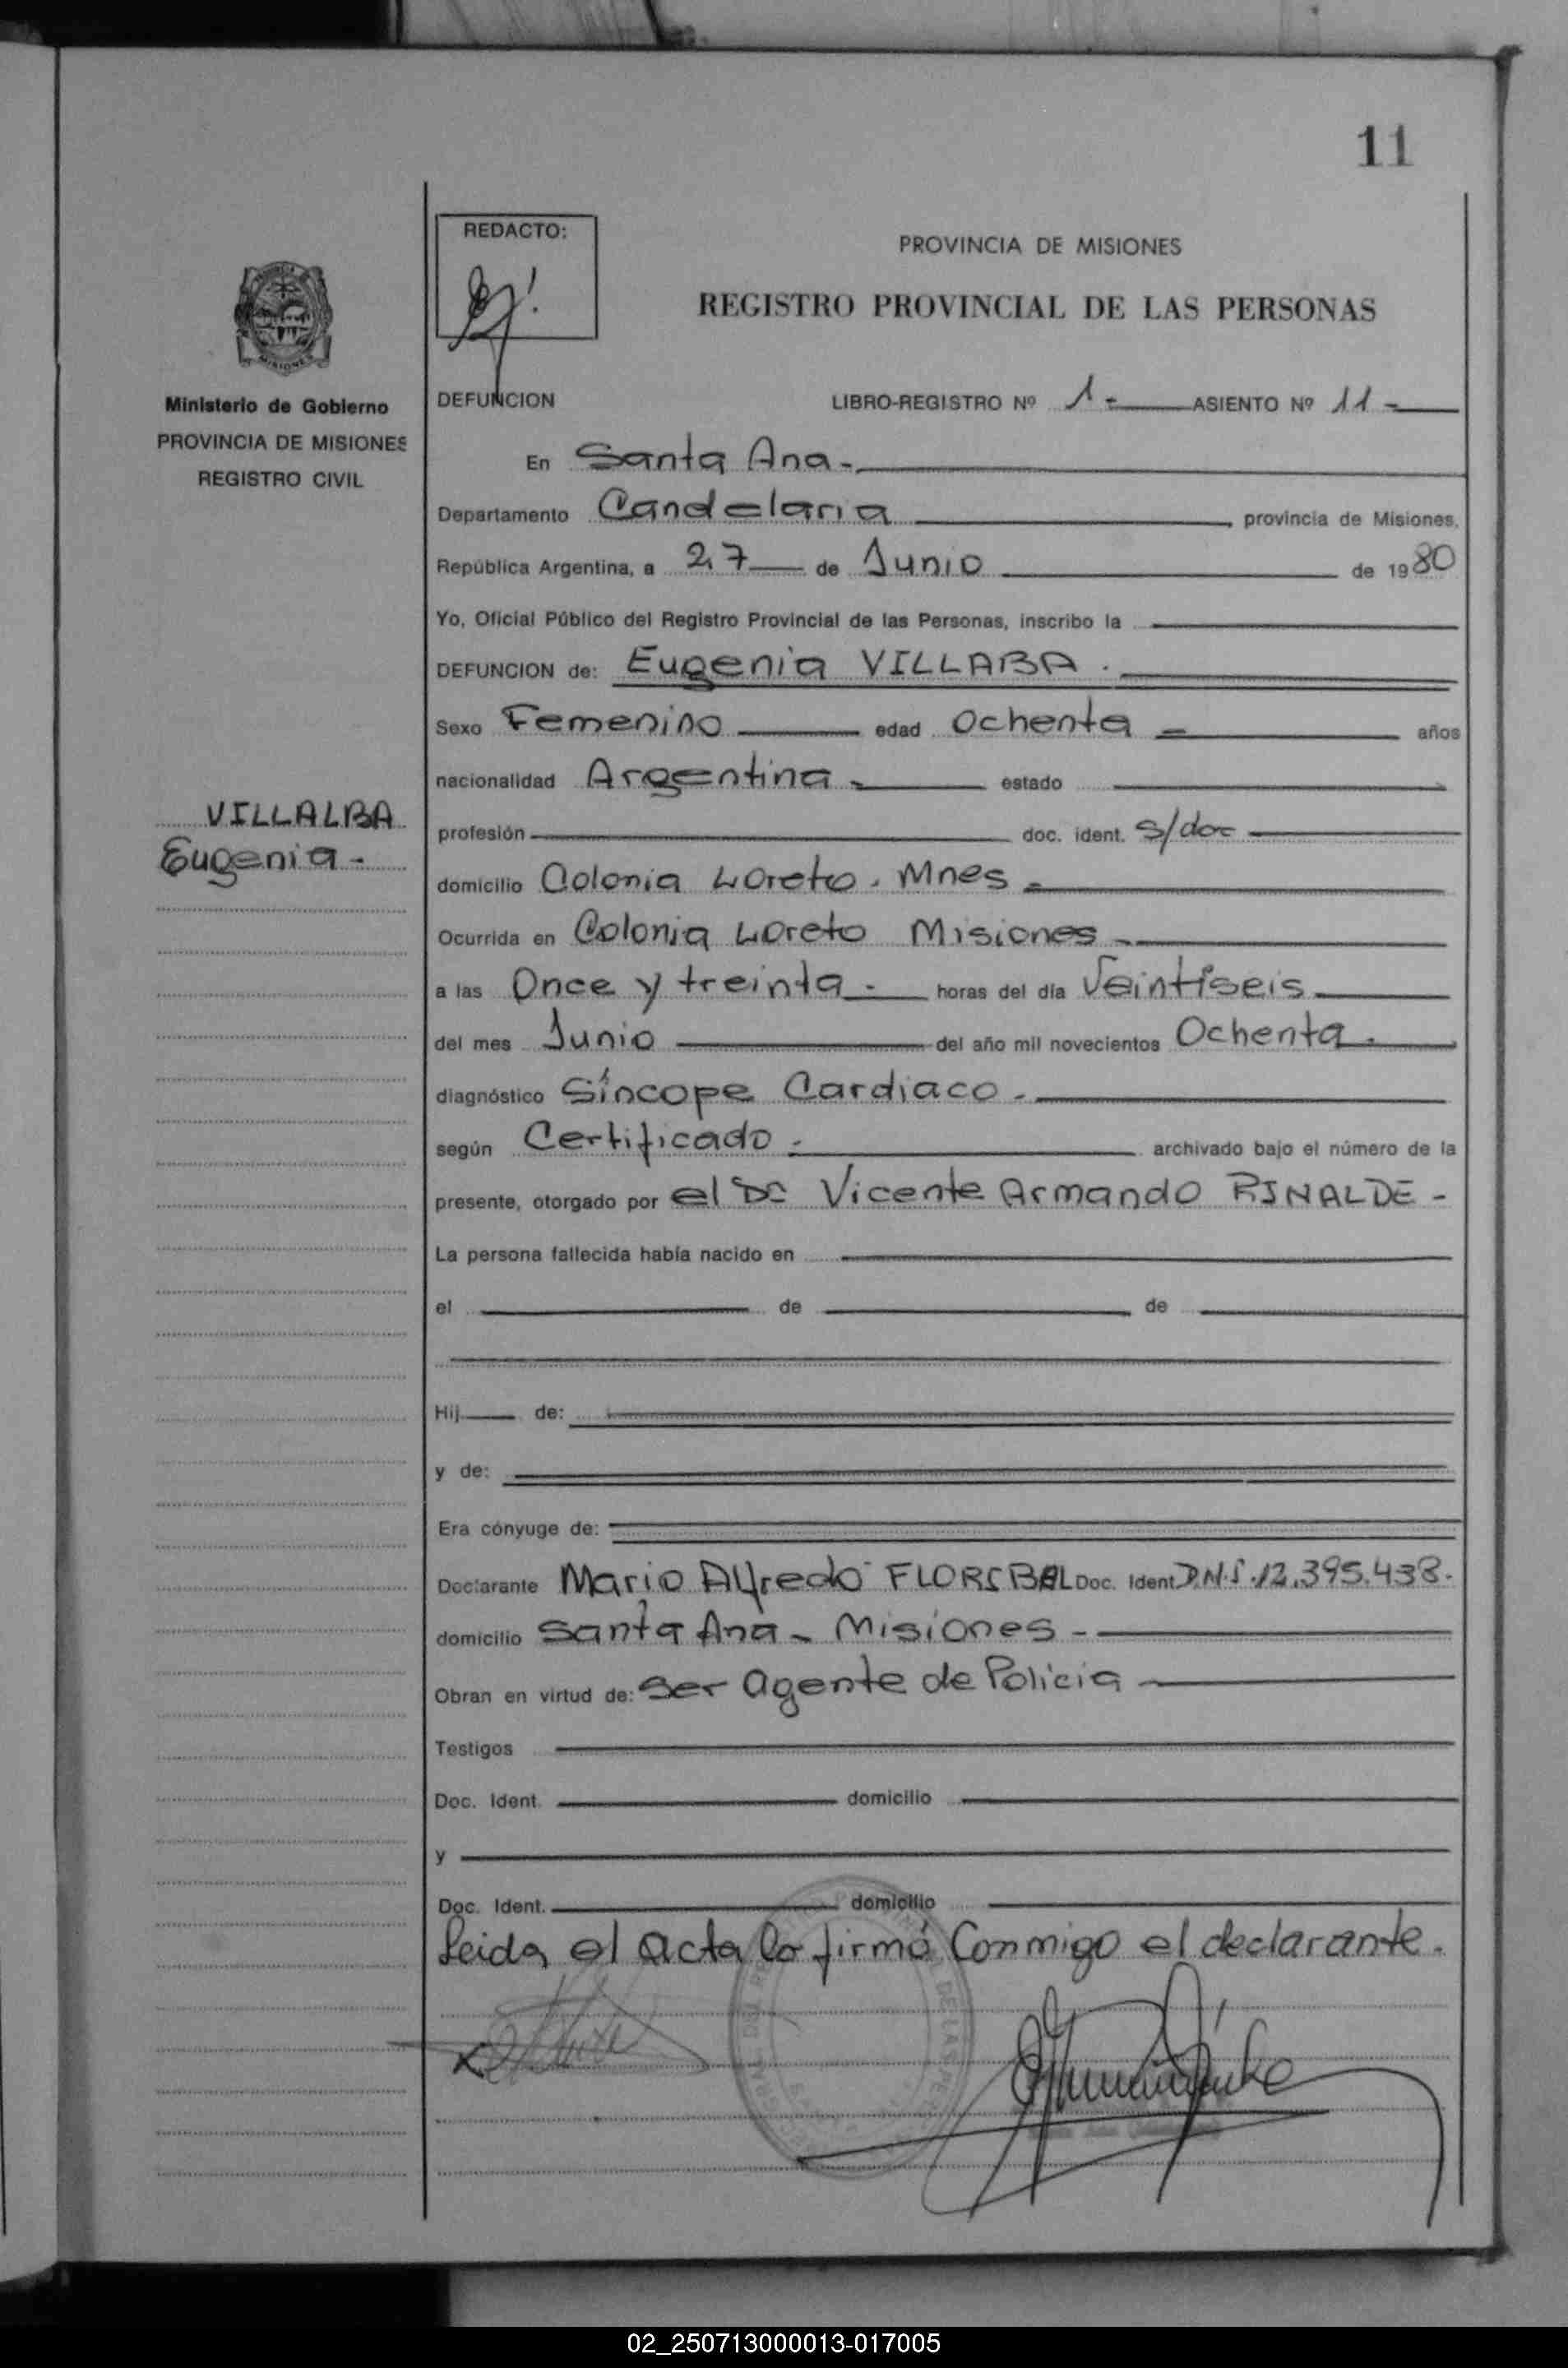 11
REDACTO:
PROVINCIA DE MISIONES
REGISTRO PROVINCIAL DE LAS PERSONAS
MISIONES
Ministerio de Gobierno
PROVINCIA DE MISIONES
REGISTRO CIVIL
DEFUNCION LIBRO-REGISTRO Nº 1- ASIENTO Nº 11-
En Santa Ana-
Departamento Candelaria, provincia de Misiones,
República Argentina, a 27 de Junio de 1980
Yo, Oficial Público del Registro Provincial de las Personas, inscribo la
DEFUNCION de: Eugenia VILLABA.
Sexo Femenino edad Ochenta - años
nacionalidad Argentina - estado
VILLALBA
Eugenia-
profesión doc. ident. s/doc
domicilio Colonia Loreto. Mnes-
Ocurrida en Colonia Loreto Misiones-
a las Once y treinta- horas del día Veintiseis
del mes Junio del año mil novecientos Ochenta.
diagnóstico Síncope Cardiaco-
según Certificado- archivado bajo el número de la
presente, otorgado por el Dr Vicente Armando RINALDE-
La persona fallecida había nacido en
el de de
Hij de:
y de:
Era cónyuge de:
Declarante Mario Alfredo FLORIBAL Doc. Ident D.N.I. 12.395.438.
domicilio Santa Ana- Misiones-
Obran en virtud de: Ser Agente de Policia
Testigos
Doc. Ident. domicilio
y
Doc. Ident. domicilio
Leida el acta la firmó Conmigo el declarante.
02_250713000013-017005